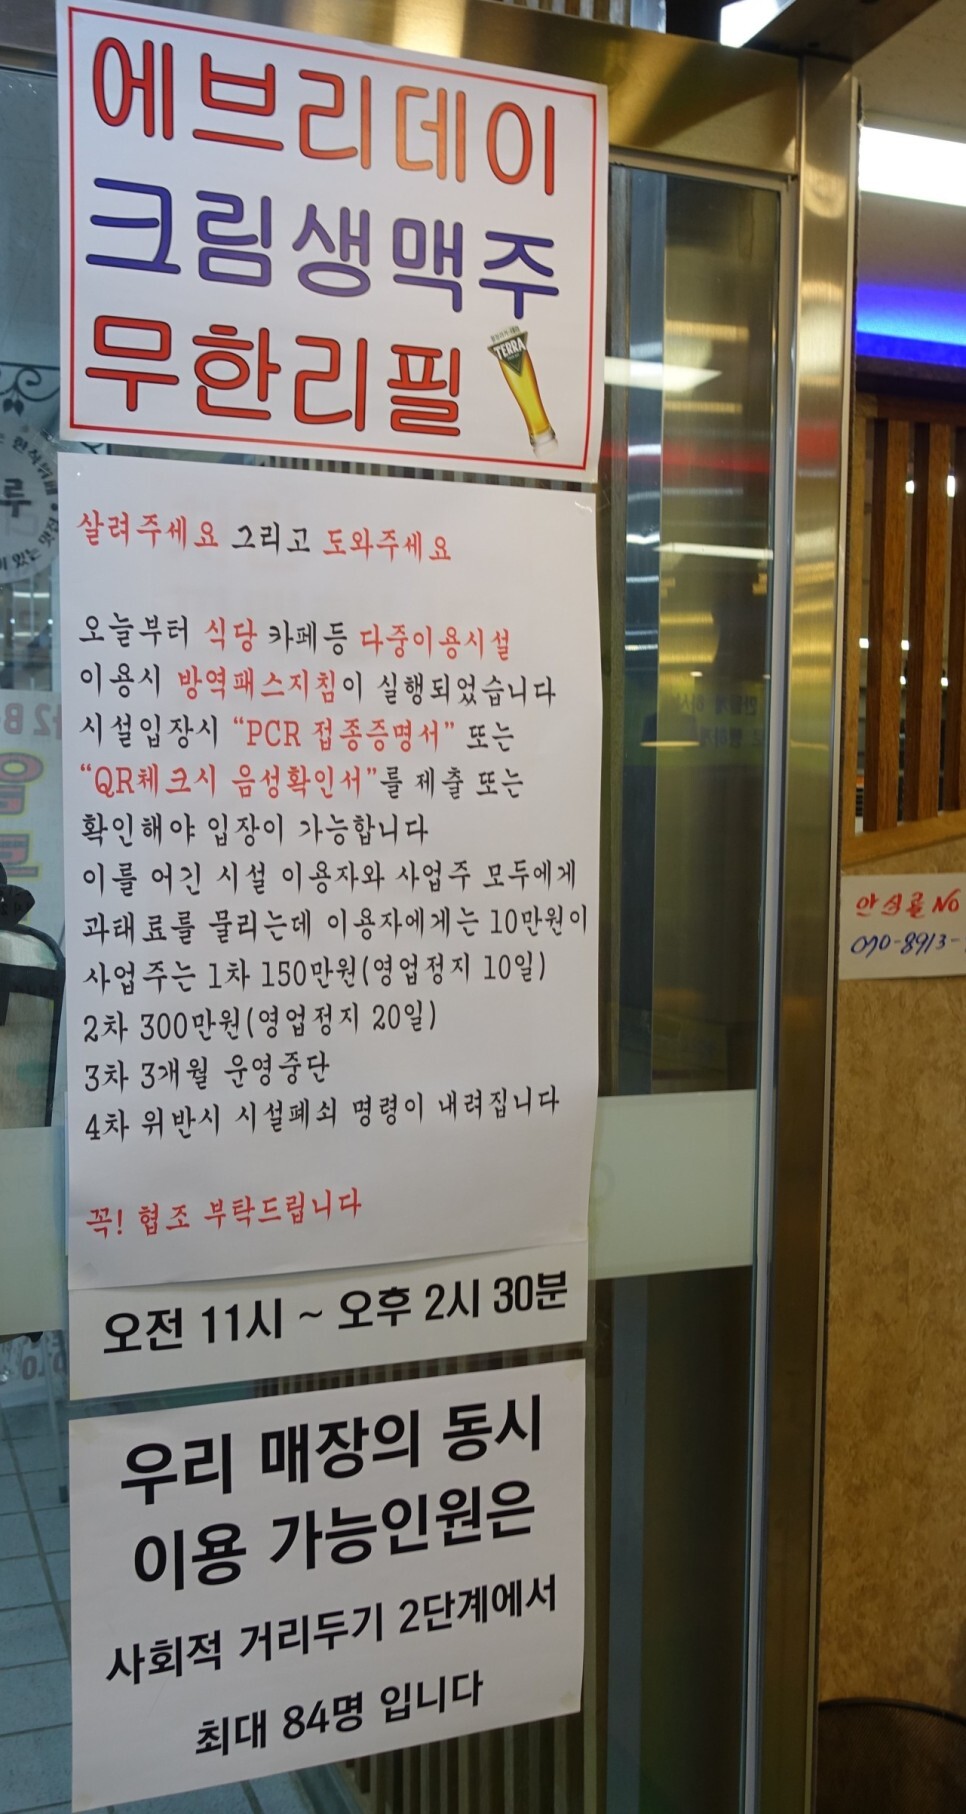 에브리데이
크림생맥주
무한리필
TERRA
살려주세요 그리고 도와주세요
오늘부터 식당 카페등 다중이용시설
이용시 방역패스지침이 실행되었습니다
시설입장시 "PCR 접종증명서" 또는
"QR체크시 음성확인서"를 제출 또는
확인해야 입장이 가능합니다
이를 어긴 시설 이용자와 사업주 모두에게
과태료를 물리는데 이용자에게는 10만원이
사업주는 1차 150만원(영업정지 10일)
2차 300만원(영업정지 20일)
3차 3개월 운영중단
4차 위반시 시설폐쇠 명령이 내려집니다
꼭! 협조 부탁드립니다
오전 11시 ~ 오후 2시 30분
우리 매장의 동시
이용 가능인원은
사회적 거리두기 2단계에서
최대 84명 입니다
안심콜 NO
070-8913-